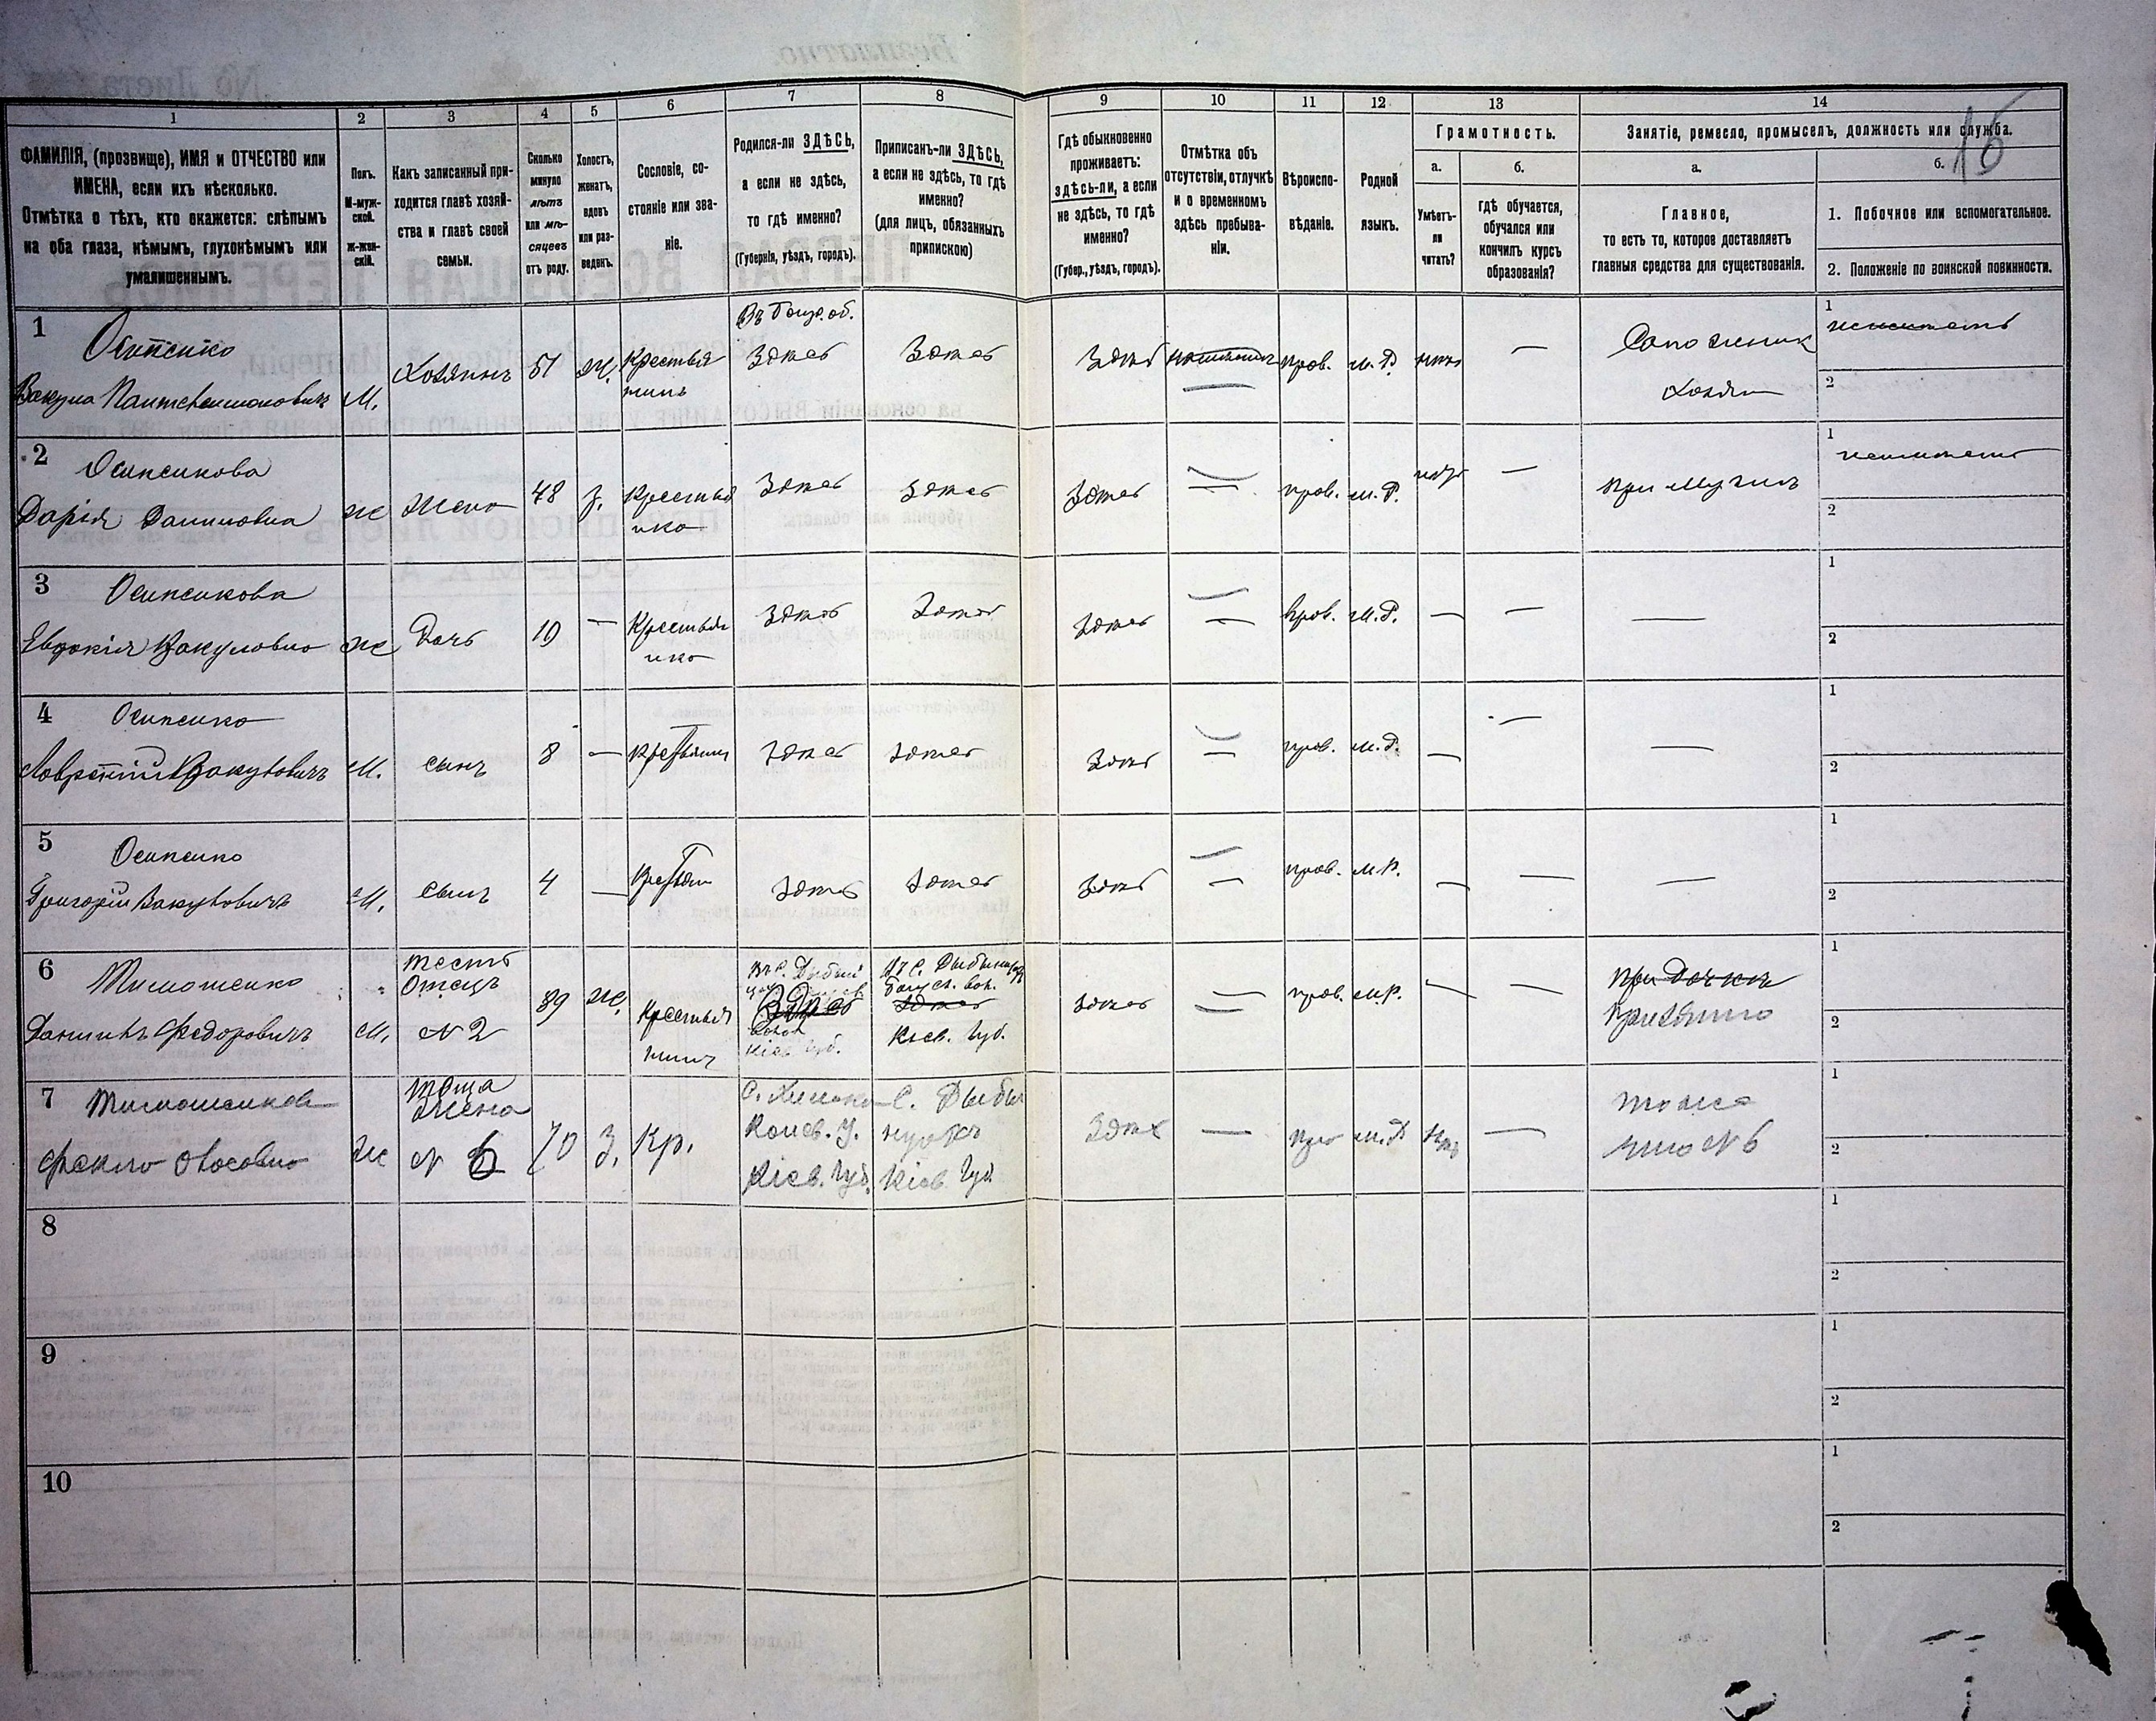 1
2
3
4
5
6
7
8
9
10
11
12
13
14
16
ФАМИЛІЯ, (прозвище), ИМЯ и ОТЧЕСТВО или
ИМЕНА, если ихъ нѣсколько.
Отмѣтка о тѣхъ, кто окажется: слѣпымъ
на оба глаза, нѣмымъ, глухонѣмымъ или
умалишеннымъ.
Полъ.
М-муж-
ской.
Ж-жен-
скій.
Какъ записанный при-
ходится главѣ хозяй-
ства и главѣ своей
семьи.
Сколько
минуло
лѣтъ
или мѣ-
сяцевъ
отъ роду.
Холостъ,
женатъ,
вдовъ
или раз-
веденъ.
Сословіе, со-
стояніе или зва-
ніе.
Родился-ли ЗДѢСЬ,
а если не здѣсь,
то гдѣ именно?
(Губернія, уѣздъ, городъ).
Приписанъ-ли ЗДѢСЬ,
а если не здѣсь, то гдѣ
именно?
(для лицъ, обязанныхъ
припискою)
Гдѣ обыкновенно
проживаетъ:
здѣсь-ли, а если
не здѣсь, то гдѣ
именно?
(Губер., уѣздъ, городъ).
Отмѣтка объ
отсутствіи, отлучкѣ
и о временномъ
здѣсь пребыва-
ніи.
Вѣроиспо-
вѣданіе.
Родной
языкъ.
Грамотность.
а.
Умѣетъ-
ли
читать?
б.
гдѣ обучается,
обучался или
кончилъ курсъ
образованія?
Занятіе, ремесло, промыселъ, должность или служба.
а.
Главное,
то есть то, которое доставляетъ
главныя средства для существованія.
б.
1. Побочное или вспомогательное.
2. Положеніе по воинской повинности.
1
Осипенко
Вакула Пантелеимоновичъ
М.
Хозяинъ
51
Ж.
Крестья
нинъ
Здѣсь
Здѣсь
Здѣсь
прав.
м. Р.
нѣтъ
—
Сапожник
Хозяин
1
2
2
Осипенкова
Дарія Даниловна
Ж
Жена
48
З.
Крестья
нка
Здѣсь
Здѣсь
Здѣсь
—
прав.
м. Р.
—
при Мужѣ
1
2
3
Осипенкова
Евдокія Вакуловна
Ж
Дочь
10
—
Крестья
нка
Здѣсь
Здѣсь
Здѣсь
—
прав.
м. Р.
—
—
—
1
2
4
Осипенко
Лаврентій Вакуловичъ
М.
сынъ
8
—
Крестьянин
Здѣсь
Здѣсь
Здѣсь
—
прав.
м. Р.
—
—
—
1
2
5
Осипенко
Григорій Вакуловичъ
М.
сынъ
4
—
Здѣсь
Здѣсь
Здѣсь
—
прав.
м. Р.
—
—
—
1
2
6
Тимошенко
Данилъ Федоровичъ
М.
тесть
Отецъ
№ 2
89
Ж.
Крестья
нинъ
Здѣсь
Кіев. Губ.
Здѣсь
Кіев. Губ.
Здѣсь
—
прав.
м. Р.
—
—
при Дочкѣ
1
2
7
Тимошенкова
Фекла Власовна
Ж
Теща
Жена
№ 6
70
З.
Кр.
Канев. У.
Кіев. Губ.
С. Дыбы
нцахъ
Кіев. Губ
Здѣсь
—
м. Р
нѣтъ
—
тоже
что № 6
1
2
8
1
2
9
1
2
10
1
2